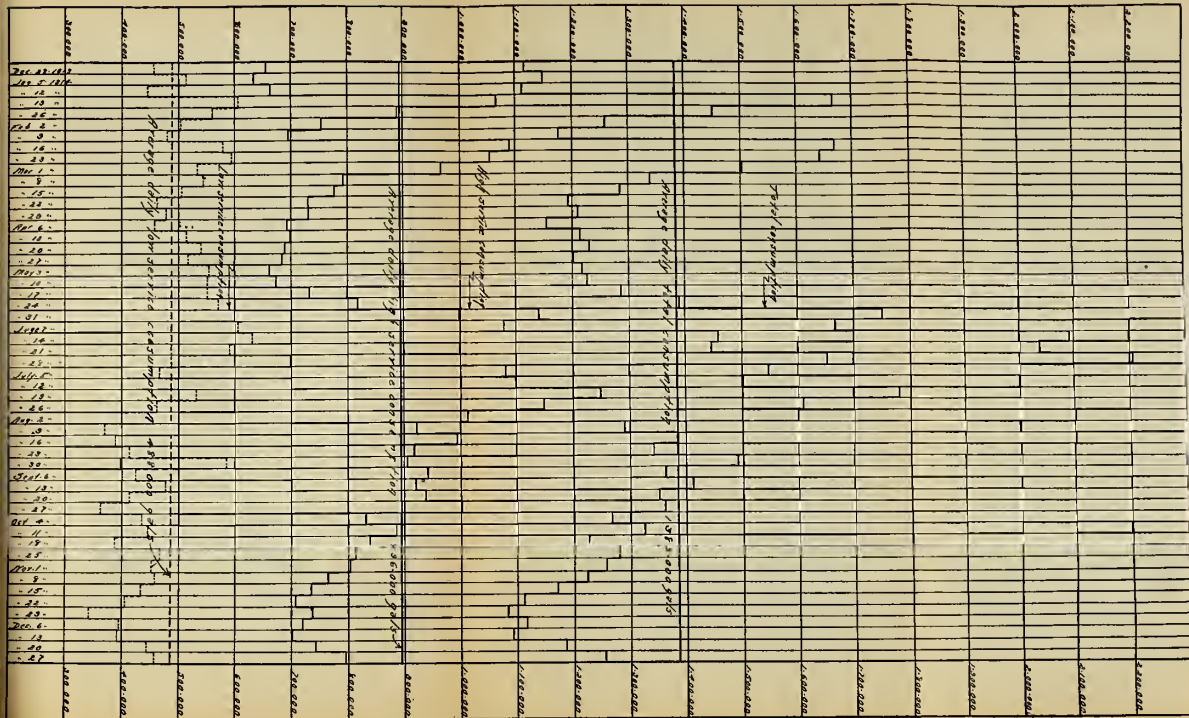 300.000
400.000
500.000
600.000
700.000
800.000
900.000
1.000.000
1.100.000
1.200.000
1.300.000
1.400.000
1.500.000
1.600.000
1.700.000
1.800.000
1.900.000
2.000.000
2.100.000
2.200.000
Dec. 29-1913
Jan. 5-1914
" 12 "
" 19 "
" 26 "
Feb. 2 "
" 9 "
" 16 "
" 23 "
Mar. 1 "
" 8 "
" 15 "
" 22 "
" 29 "
Apr. 6 "
" 13 "
" 20 "
" 27 "
May 3 "
" 10 "
" 17 "
" 24 "
" 31 "
June 7 "
" 14 "
" 21 "
" 28 "
July 5 "
" 12 "
" 19 "
" 26 "
Aug. 2 "
" 9 "
" 16 "
" 23 "
" 30 "
Sept. 6 "
" 13 "
" 20 "
" 27 "
Oct. 4 "
" 11 "
" 18 "
" 25 "
Nov. 1 "
" 8 "
" 15 "
" 22 "
" 29 "
Dec. 6 "
" 13 "
" 20 "
" 27 "
Average daily low service consumption 488.000 gals
Low service consumption
Average daily high service consumption 896.000 gals
High service consumption
Average daily total consumption 1383000 gals
Total consumption
300.000
400.000
500.000
600.000
700.000
800.000
900.000
1.000.000
1.100.000
1.200.000
1.300.000
1.400.000
1.500.000
1.600.000
1.700.000
1.800.000
1.900.000
2.000.000
2.100.000
2.200.000